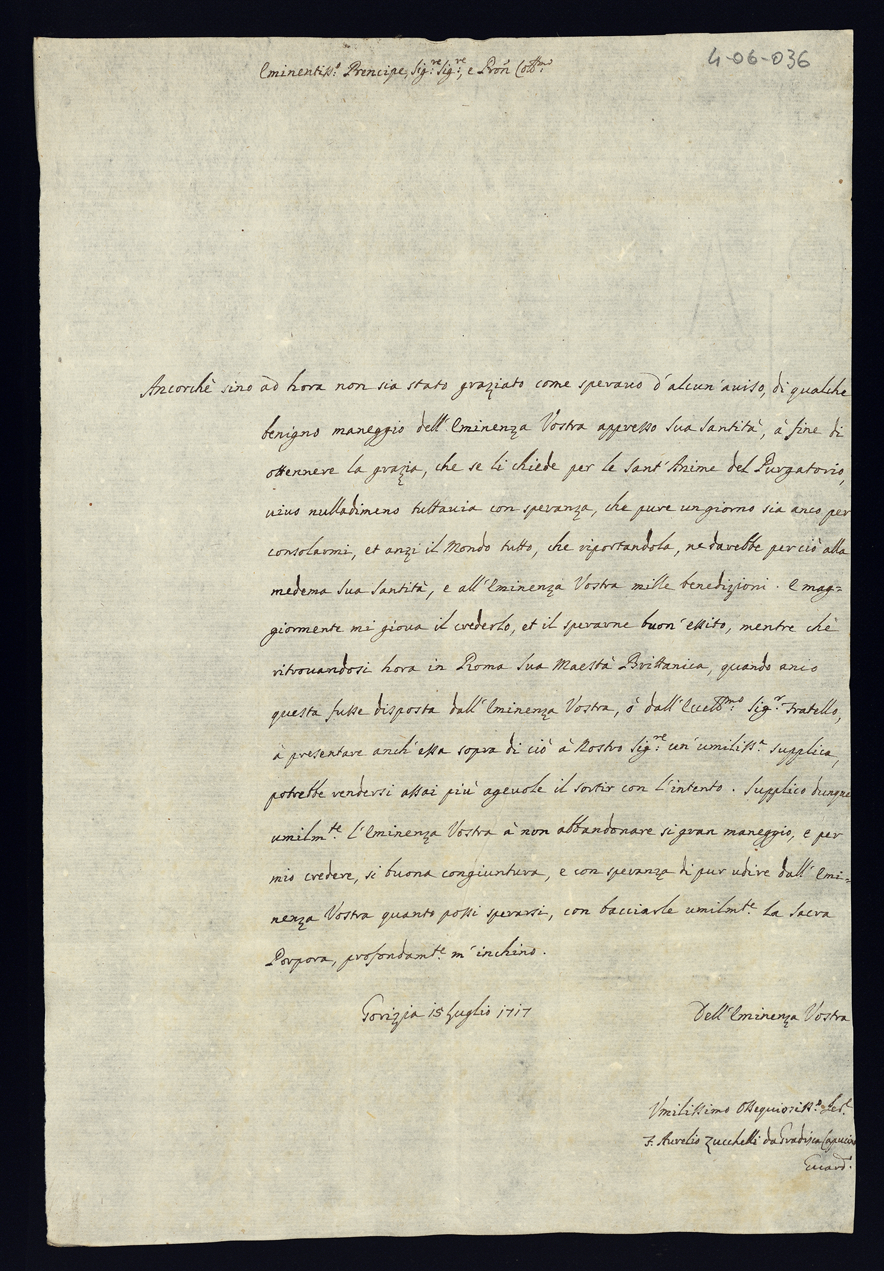 4-06-036
Eminentiss.º Prencipe, Sig.re Sig.re, e Prõn Coll.mo
Ancorchè sino ad hora non sia stato graziato come speravo d'alcun'auiso, di qualche
benigno maneggio dell'Eminenza Vostra appresso sua Santità, à fine di
ottennere la grazia, che se li chiede per le Sant'Anime del Purgatorio,
uiuo nulladimeno tuttauia con speranza, che pure un giorno sia anco per
consolarmi, et anzi il Mondo tutto, che riportandola, ne darebbe perciò alla
medema Sua Santità, e all'Eminenza Vostra mille benedizioni. E mag=
giormente mi gioua il crederlo, et il sperarne buon'essito, mentre che
ritrouandosi hora in Roma Sua Maestà Brittanica, quando anco
questa fusse disposta dall'Eminenza Vostra, ò dall'Ecell.mo Sig.r Fratello,
à presentare anch'essa sopra di ciò à Nostro Sig.re un'umiliss.a supplica,
potrebbe rendersi assai più ageuole il sortir con l'intento. Supplico dunque
umilm.te l'Eminenza Vostra à non abbandonare si gran maneggio, e per
mio credere, si buona congiuntura, e con speranza di pur udire dall'Emi=
nenza Vostra quanto possi sperarsi, con bacciarle umilm.te la Sacra
Porpora, profondam.te m'inchino.
Gorizia 15 Luglio 1717
Dell'Eminenza Vostra
Vmilissimo Ossequiosiss.º
F. Aurelio Zucchelli da Gradisca Capucino
Guard.º